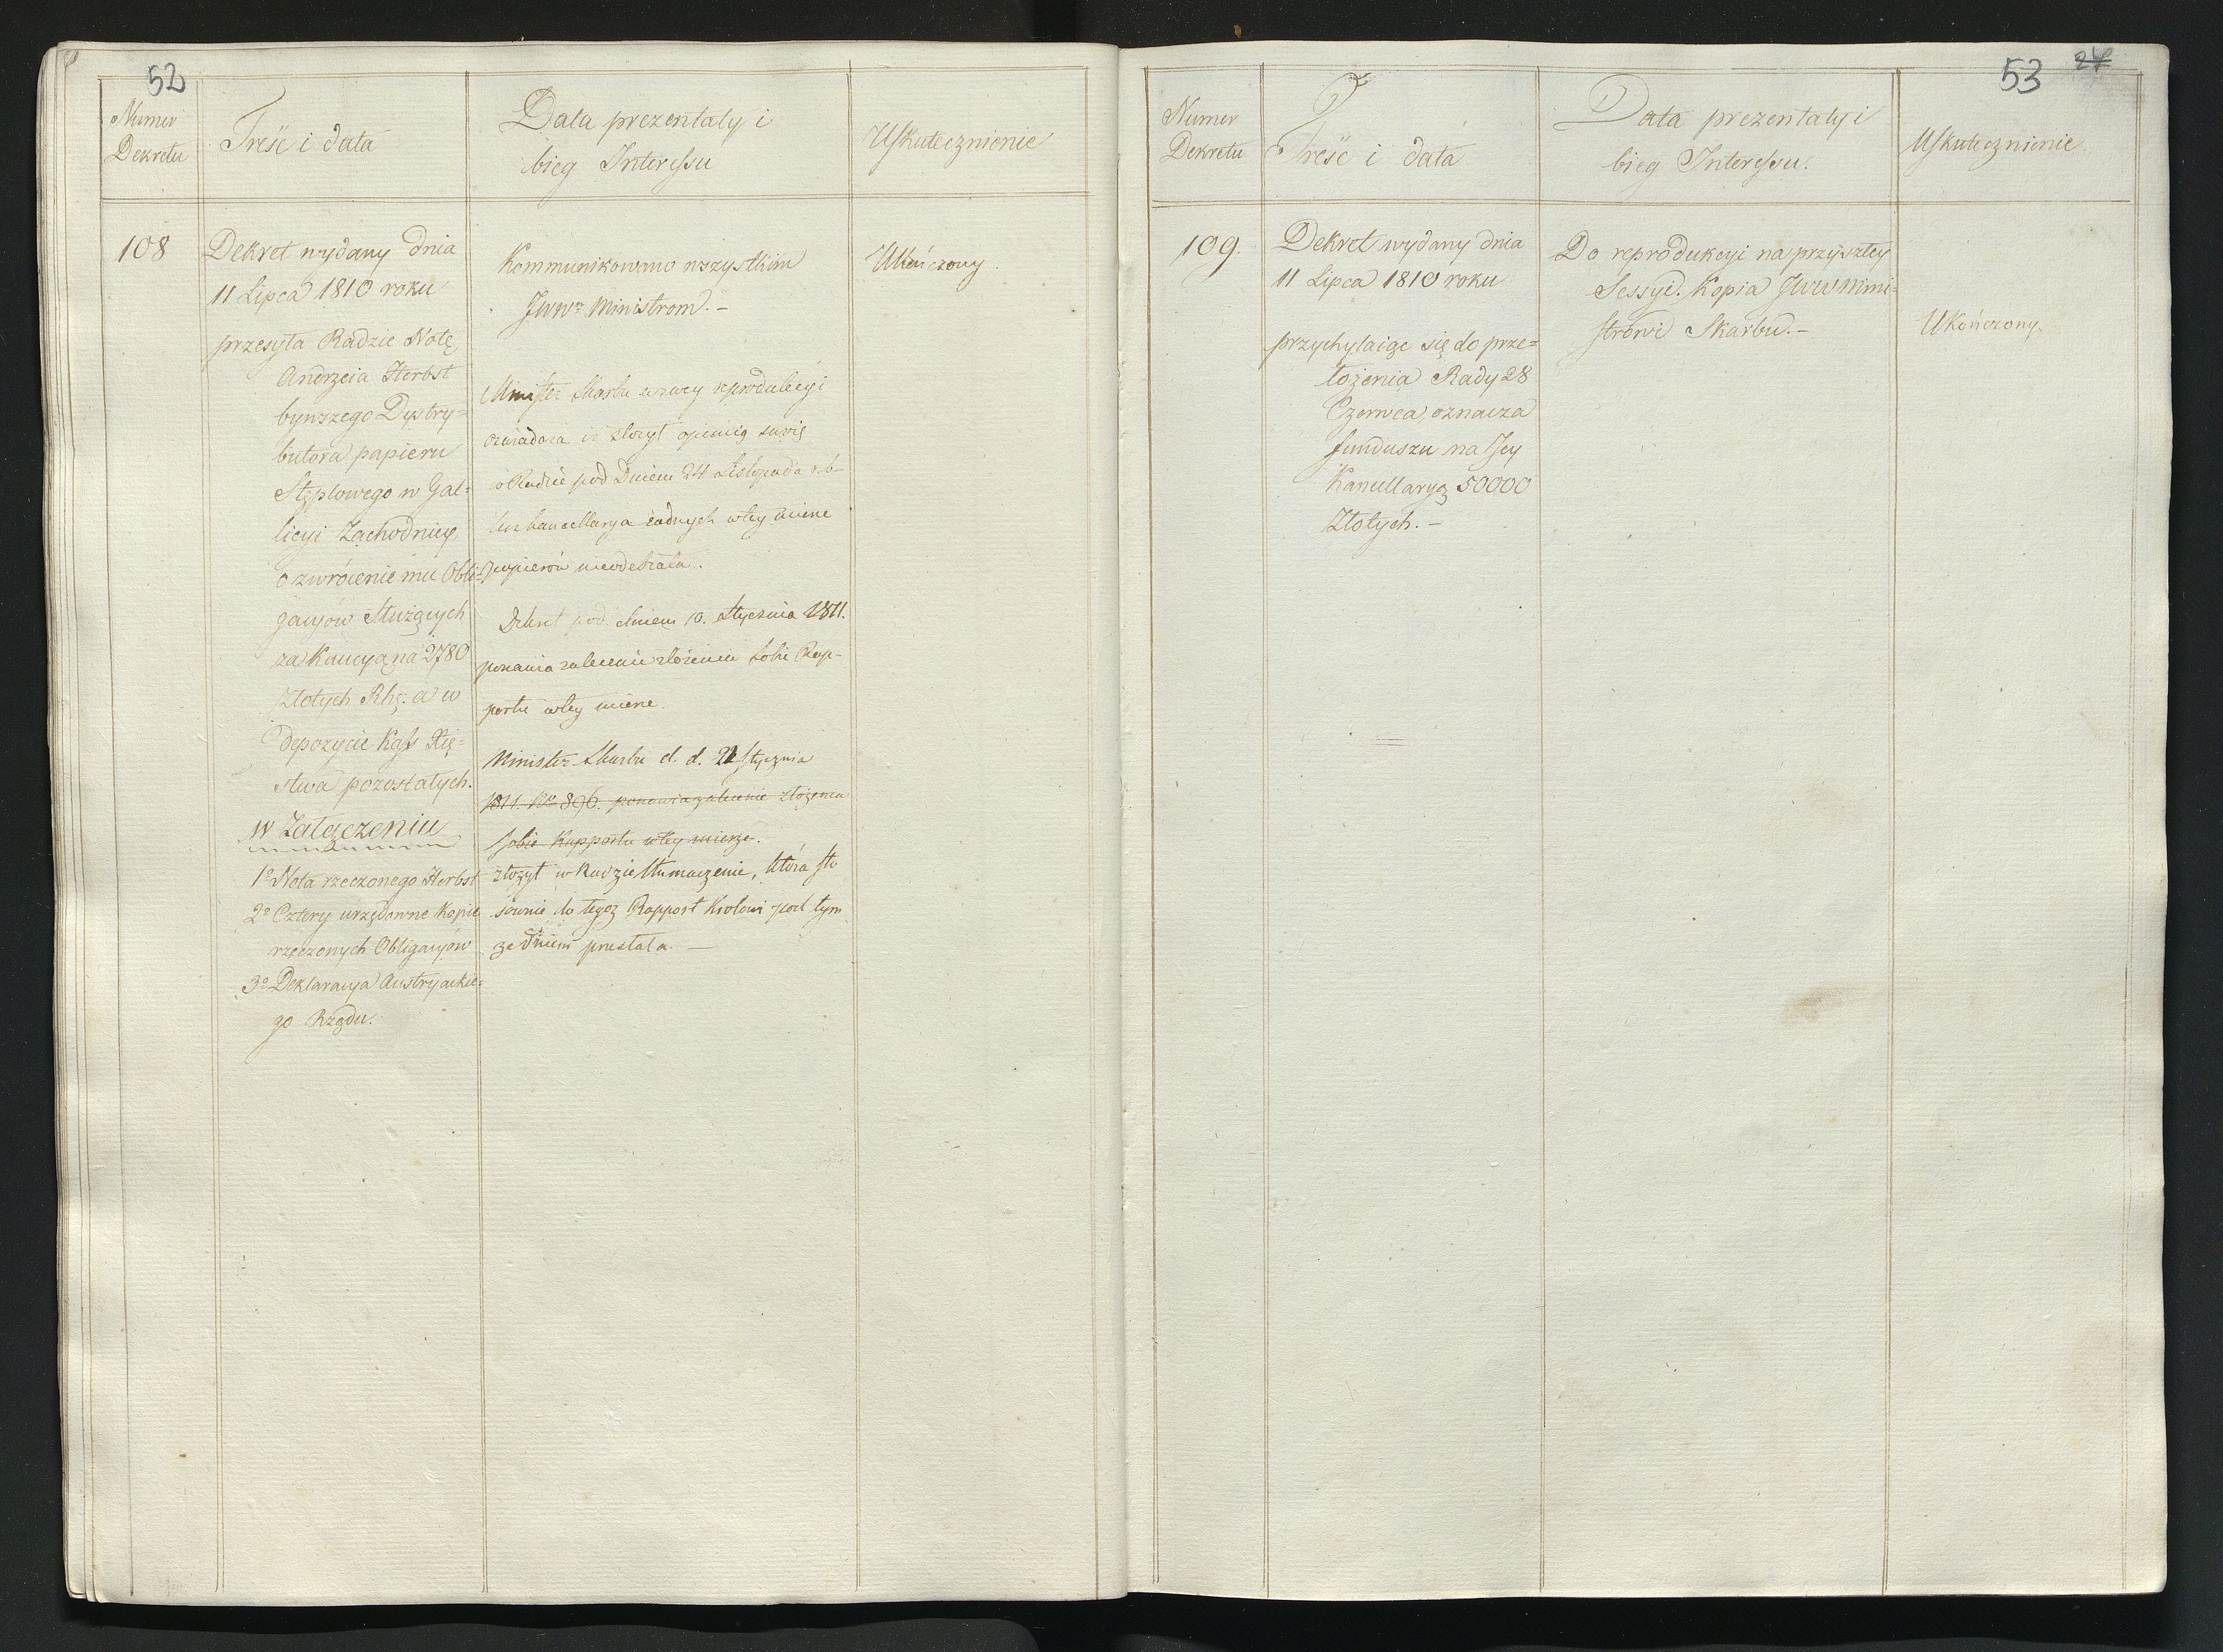 52
Numer
Dekretu
Treść i data
Data prezentaty i
bieg Interessu
Uskutecznienie
108
Dekret wydany dnia
11 Lipca 1810 roku
przesyła Radzie Notę
Andrzeia Herbst
bywszego Dystry=
butora papieru
Stęplowego w Gal=
licyi Zachodniey,
o zwrócenie mu Obli=
gacyów służących
za Kaucyą na 2780
Złotych Rhs: a w
Depozycie Kass Xię=
stwa pozostałych.
W Załączeniu
1º Nota rzeczonego Herbst
2º Cztery urzędowne Kopie
rzeczonych Obligacyów
3º Deklaracya Austryackie=
go Rządu.
Kommunikowano wszystkim
JWWm Ministrom.-
Minister Skarbu w racy reprodukcyi
oświadcza iż złożył opinią swoię
w Radzie pod Dniem 24 Listopada r.b-
lecz kancellarya żadnych w tey mierze
papierów nieodebrała.
Dekret pod dniem 10. Stycznia 1811.
ponawia zalecenie złożenia sobie Rap-
portu w tey mierze.
Minister Skarbu d. d. 21 Stycznia
1811. No 896. ponawia zalecenie złożenia
sobie Rapportu w tey mierze.
złożył w Radzie tłumaczenie, która sto
sownie do tegoż Rapport Krolowi pod tym
że dniem przesłała. -
Ukończony.
53 27
Numer
Dekretu
Treść i data
Data prezentaty i
bieg Interessu.
Uskutecznienie.
109.
Dekret wydany dnia
11 Lipca 1810 roku
przychylaiąc się do prze=
łożenia Rady 28
Czerwca, oznacza
funduszu na Jey
Kancellaryą 50000
Złotych. -
Do reprodukcyi na przyszłey
Sessyi. Kopia JWW Mini=
strowi Skarbu. -
Ukończony.